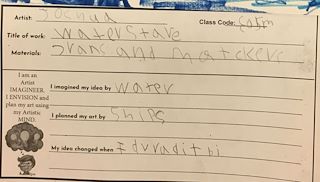 Artist: Joshua Class Code:
Title of work: Waterstave
Materials: and
I am an
Artist
IMAGINEER.
I ENVISION and
plan my art using
my Artistic
MIND.
I imagined my idea by water
I planned my art by Ships
My idea changed when